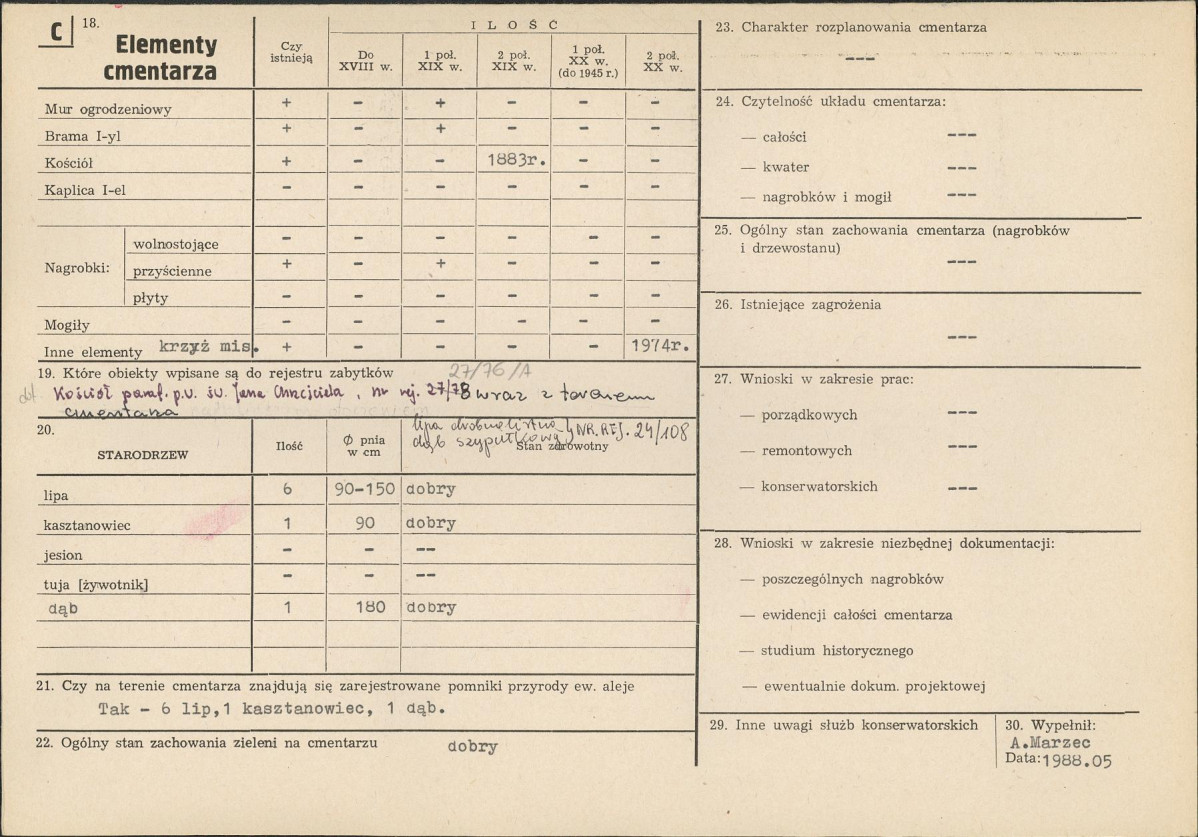 C
18.
Elementy
cmentarza
Czy
istnieją
I L O Ś Ć
Do
XVIII w.
1 poł.
XIX w.
2 poł.
XIX w.
1 poł.
XX w.
(do 1945 r.)
2 poł.
XX w.
Mur ogrodzeniowy + – + – – –
Brama I-yl + – + – – –
Kościół + – – 1883r. – –
Kaplica I-el – – – – – –
Nagrobki:
wolnostojące – – – – – –
przyścienne + – + – – –
płyty – – – – – –
Mogiły – – – – – –
Inne elementy krzyż mis. + – – – – 1974r.
19. Które obiekty wpisane są do rejestru zabytków 27/76/A
Kościół paraf. p.w. św. Jana Chrzciciela, nr rej. 27/78 wraz z terenem
cmentarza
20.
STARODRZEW
Ilość
Ø pnia
w cm
lipa drobnolistna
dąb szypułkowy } NR. REJ. 24/108
Stan zdrowotny
lipa 6 90-150 dobry
kasztanowiec 1 90 dobry
jesion – – --
tuja [żywotnik] – – --
dąb 1 180 dobry
21. Czy na terenie cmentarza znajdują się zarejestrowane pomniki przyrody ew. aleje
Tak – 6 lip,1 kasztanowiec, 1 dąb.
22. Ogólny stan zachowania zieleni na cmentarzu dobry
23. Charakter rozplanowania cmentarza
---
24. Czytelność układu cmentarza:
— całości ---
— kwater ---
— nagrobków i mogił ---
25. Ogólny stan zachowania cmentarza (nagrobków
i drzewostanu)
---
26. Istniejące zagrożenia
---
27. Wnioski w zakresie prac:
— porządkowych ---
— remontowych ---
— konserwatorskich ---
28. Wnioski w zakresie niezbędnej dokumentacji:
— poszczególnych nagrobków
— ewidencji całości cmentarza
— studium historycznego
— ewentualnie dokum. projektowej
29. Inne uwagi służb konserwatorskich
30. Wypełnił:
A.Marzec
Data:1988.05